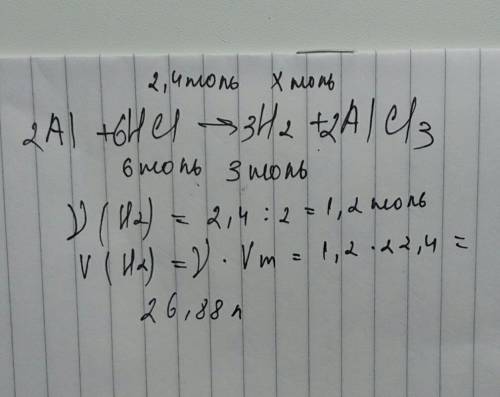 2,4 моль х моль
2Al + 6HCl → 3H2 + 2AlCl3
6 моль 3 моль
ν(H2) = 2,4 : 2 = 1,2 моль
V(H2) = ν · Vm = 1,2 · 22,4 =
26,88 л